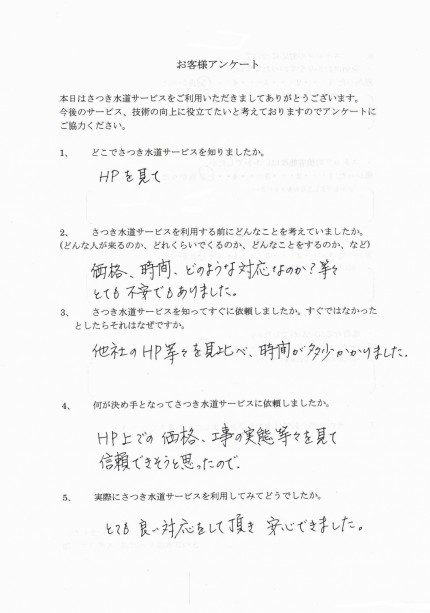 お客様アンケート
本日はさつき水道サービスをご利用いただきましてありがとうございます。
今後のサービス、技術の向上に役立てたいと考えておりますのでアンケートに
ご協力ください。
1、 どこでさつき水道サービスを知りましたか。
HPを見て
2、 さつき水道サービスを利用する前にどんなことを考えていましたか。
(どんな人が来るのか、どれくらいでくるのか、どんなことをするのか、など)
価格、時間、どのような対応なのか?等々
とても不安でもありました。
3、 さつき水道サービスを知ってすぐに依頼しましたか。すぐではなかった
としたらそれはなぜですか。
他社のHP等々を見比べ、時間が多少かかりました。
4、 何が決め手となってさつき水道サービスに依頼しましたか。
HP上での価格、工事の実態等々を見て
信頼できそうと思ったので.
5、 実際にさつき水道サービスを利用してみてどうでしたか。
とても良い対応をして頂き 安心できました。